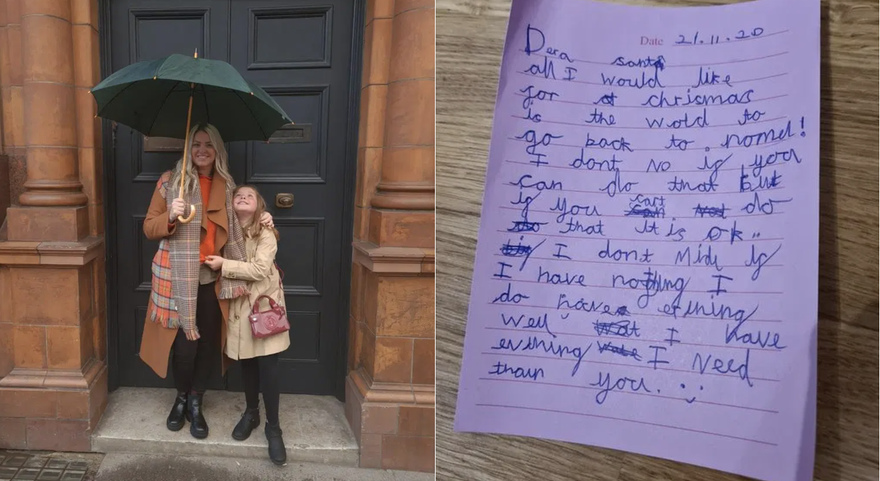 Date 21.11.20
Dera santa
all I would like
for chrismas
is the wold to
go back to . nomel!
I dont no if you
can do that but
if you cart do
that it is ok..
I dont mide if
I have nothing I
do have erthing
well I have
evthing I need
than you.